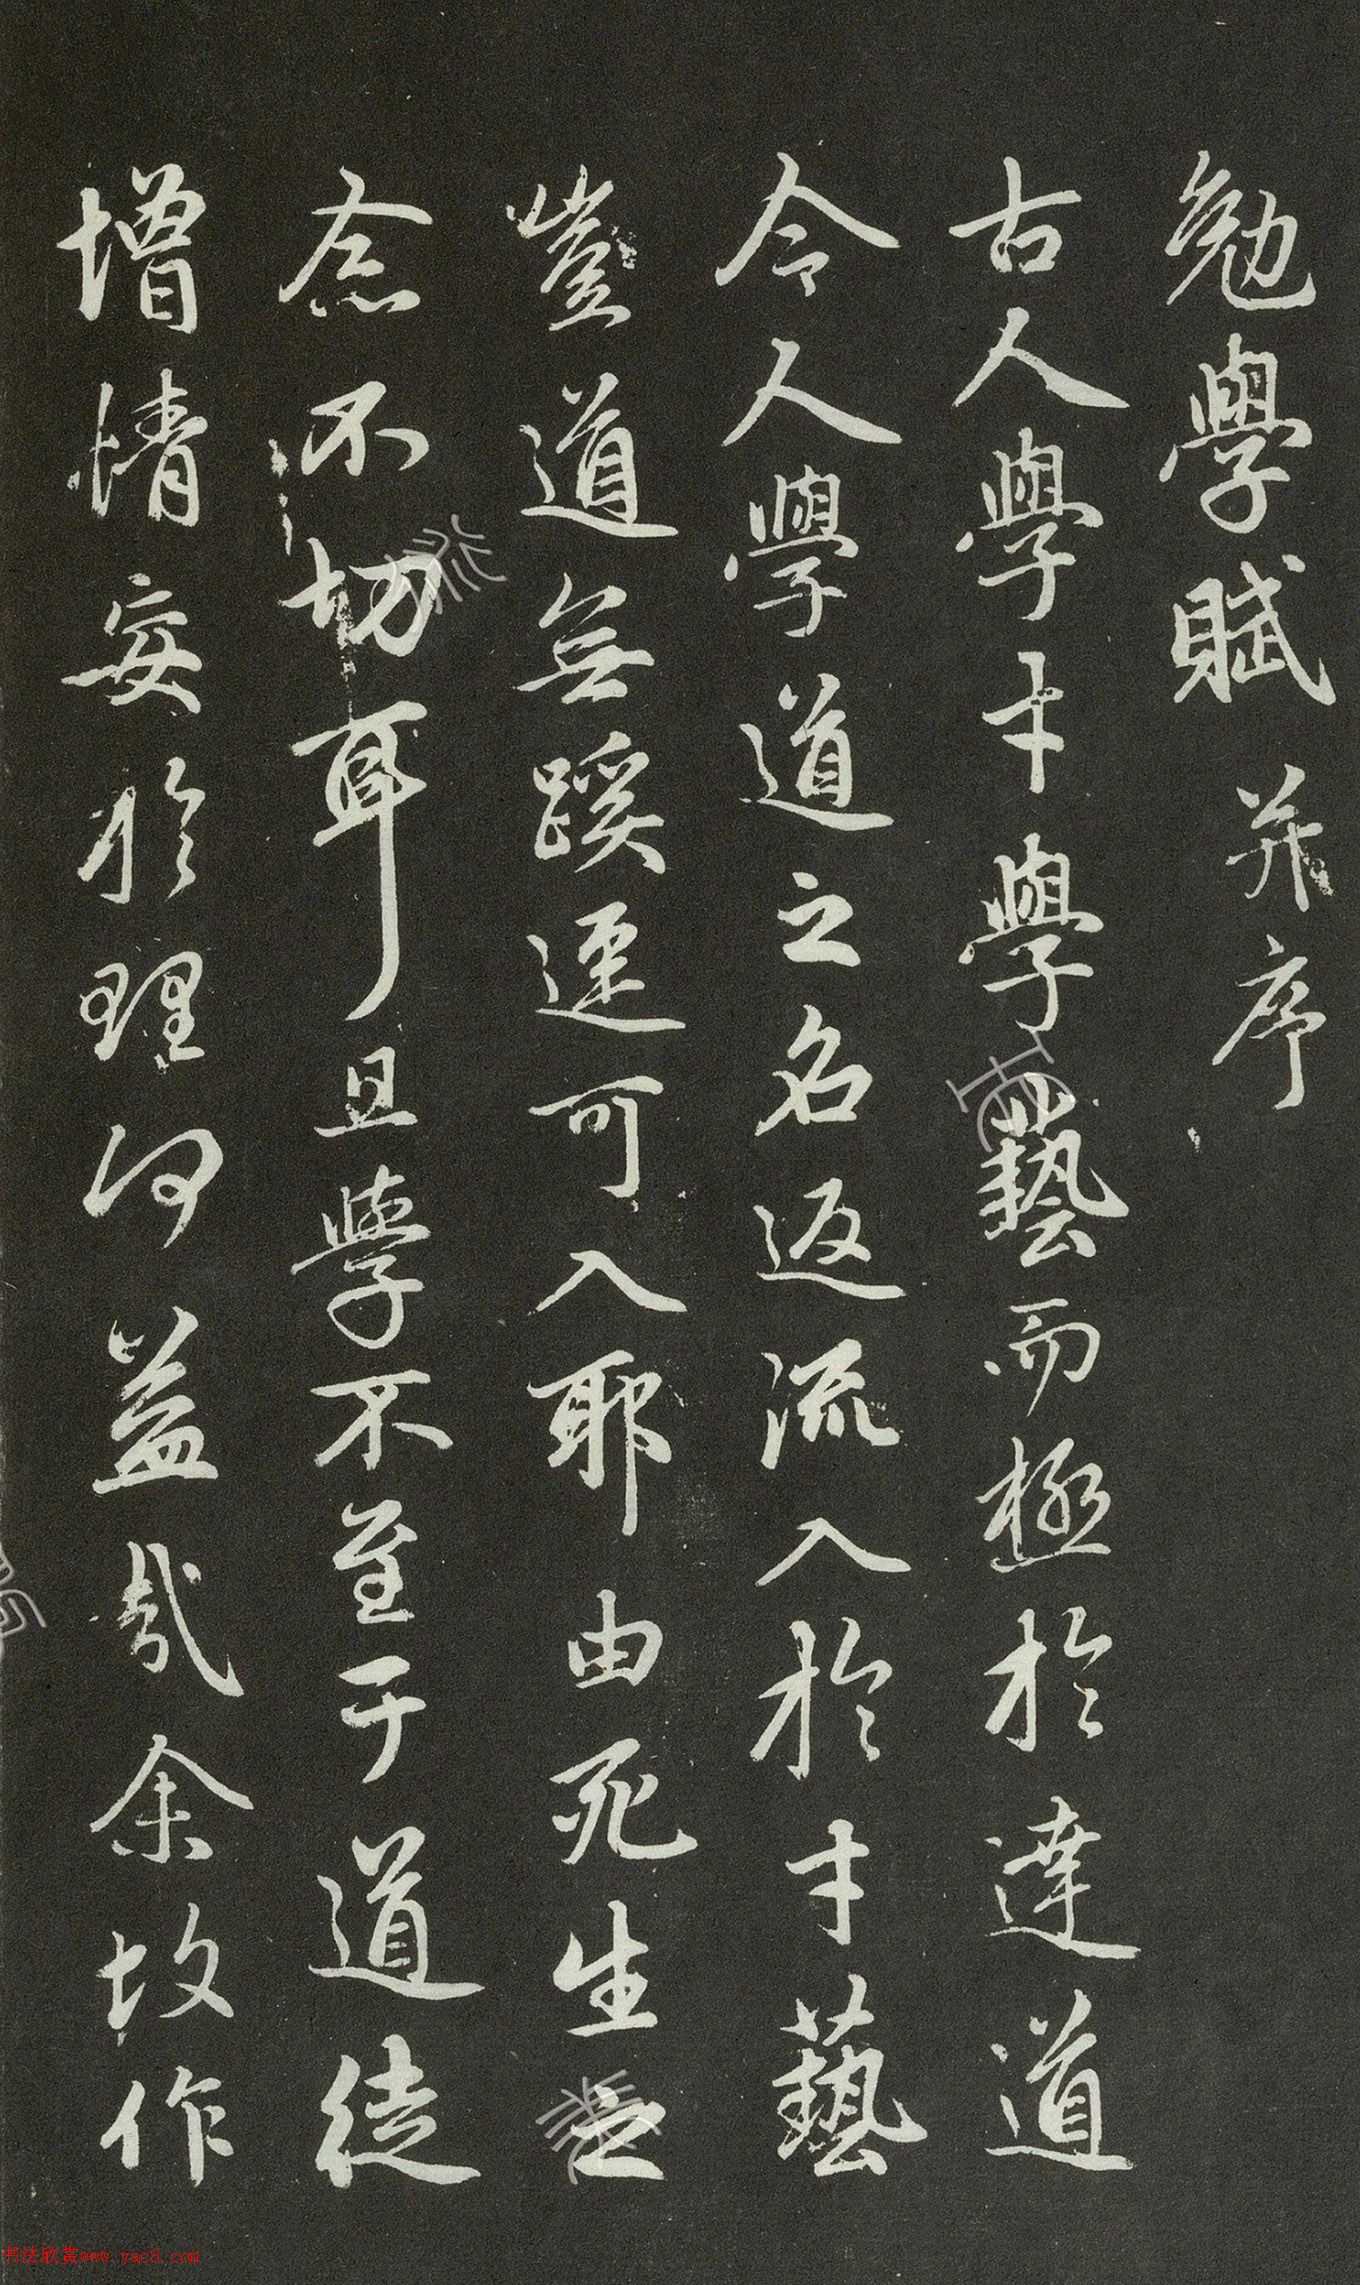 勉學賦并序
古人學才學藝而極於達道
今人學道之名返流入於才藝
豈道無蹊逕可入耶由死生之
念不切耳且學不至于道徒
增情妄於理何益哉余故作
书法欣赏www.yac8.com